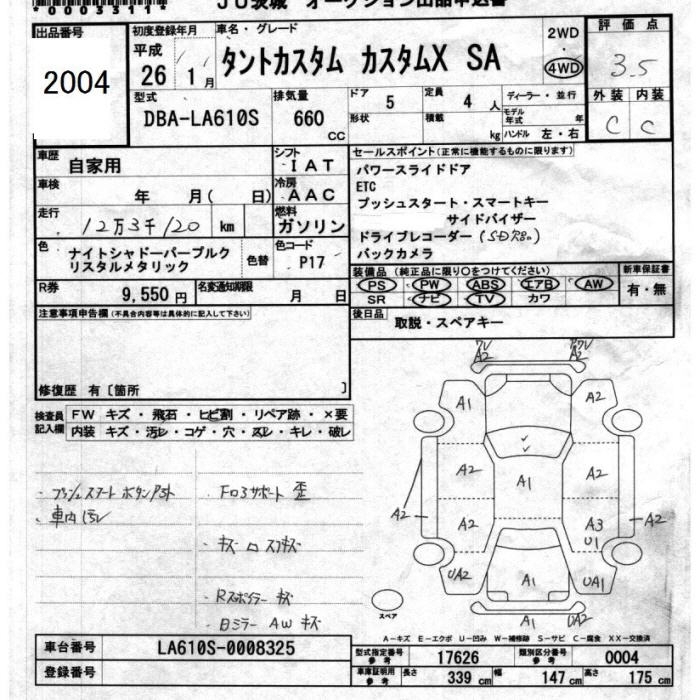 *0003311*
JU茨城 オークション出品申込書
出品番号
2004
初度登録年月
平成
26 年 1 月
車名・グレード
タントカスタム カスタムX SA
2WD
・
4WD
評価点
3.5
外装 内装
C C
型式
DBA-LA610S
排気量
660
CC
ドア
5
定員
4 人
形状
積載
kg
ディーラー・並行
モデル
年式 年
ハンドル 左・右
車歴
自家用
シフト
IAT
車検
年 月( 日)
冷房
AAC
走行
12万3千120 km
燃料
ガソリン
色
ナイトシャドーパープルク
リスタルメタリック
色替
色コード
P17
R券
9,550 円
名変通知期限
月 日
セールスポイント(正常に機能するものに限ります)
パワースライドドア
ETC
プッシュスタート・スマートキー
サイドバイザー
ドライブレコーダー
バックカメラ
装備品 (純正品に限り○をつけてください)
PS PW ABS エアB AW
SR ナビ TV カワ
新車保証書
有・無
後日品
取説・スペアキー
注意事項申告欄(不具合内容等は具体的に記入して下さい)
修復歴 有〔箇所 〕
検査員
記入欄
FW キズ・飛石・ヒビ割・リペア跡・×要
内装 キズ・汚レ・コゲ・穴・スレ・キレ・破レ
・プッシュスタートボタン
・車内汚レ
・Fロアサポート歪
・キズ
・Rスポイラー キズ
・日ミラー AW キズ
A2 A2
A1 A2
A2 A1 A2
A2 A2 A3 A2
U1
UA2 A1 UA1
A1 UA2
スペア
A-キズ E-エクボ U-凹み W-補修跡 S-サビ C-腐食 XX-交換済
車台番号
LA610S-0008325
登録番号
型式指定番号
参考
17626
類別区分番号
参考
0004
車庫証明用
参考
長さ 339 cm 幅 147 cm 高さ 175 cm